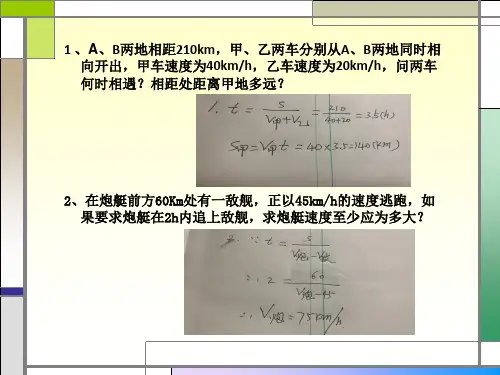 1、A、B两地相距210km，甲、乙两车分别从A、B两地同时相
向开出，甲车速度为40km/h，乙车速度为20km/h，问两车
何时相遇？相距处距离甲地多远？
1. t = S/(V甲+V乙) = 210/(40+20) = 3.5(h)
S甲=V甲t = 40×3.5=140(km)
2、在炮艇前方60Km处有一敌舰，正以45km/h的速度逃跑，如
果要求炮艇在2h内追上敌舰，求炮艇速度至少应为多大？
2. ∵ t = S/(V炮-V敌)
∴ 2 = 60/(V炮-45)
∴ V炮=75km/h.